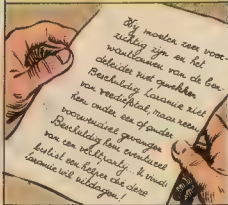 Wij moeten zeer voor-
zichtig zijn en het
wantrouwen van de ben-
deleider niet opwekken
Beschuldig Laramie niet
van veediefstal, maar neem
hem onder een of ander
voorwendsel gevangen
Beschuldig hem eventueel
van een vechtpartij.. Ik vind
beslist een helper die deze
Laramie wil uitdagen!